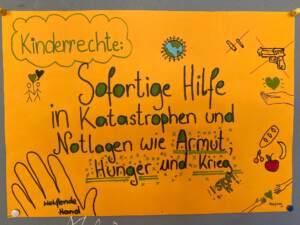 Kinderrechte:
Sofortige Hilfe
in Katastrophen und
Notlagen wie Armut,
Hunger und Krieg
Helfende
Hand